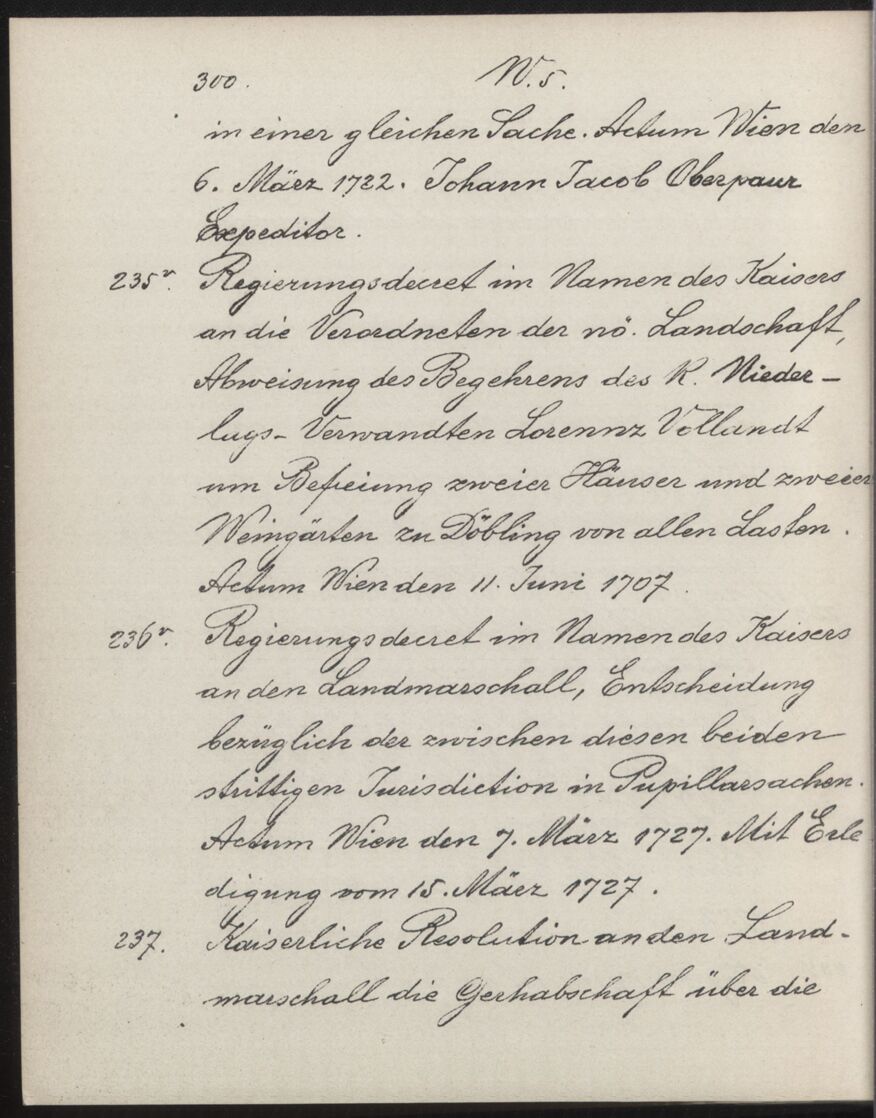 300. N. 5.
in einer gleichen Sache. Actum Wien den
6. März 1722. Johann Jacob Oberpaur
Expeditor.
235v. Regierungsdecret im Namen des Kaisers
an die Verordneten der nö. Landschaft,
Abweisung des Begehrens des K. Nieder-
lags-Verwandten Lorennz Vollandt
um Befreiung zweier Häuser und zweier
Weingärten zu Döbling von allen Lasten.
Actum Wien den 11. Juni 1707.
236v. Regierungsdecret im Namen des Kaisers
an den Landmarschall, Entscheidung
bezüglich der zwischen diesen beiden
strittigen Jurisdiction in Pupillarsachen.
Actum Wien den 7. März 1727. Mit Erle
digung vom 15. März 1727.
237. Kaiserliche Resolution an den Land-
marschall die Gerhabschaft über die